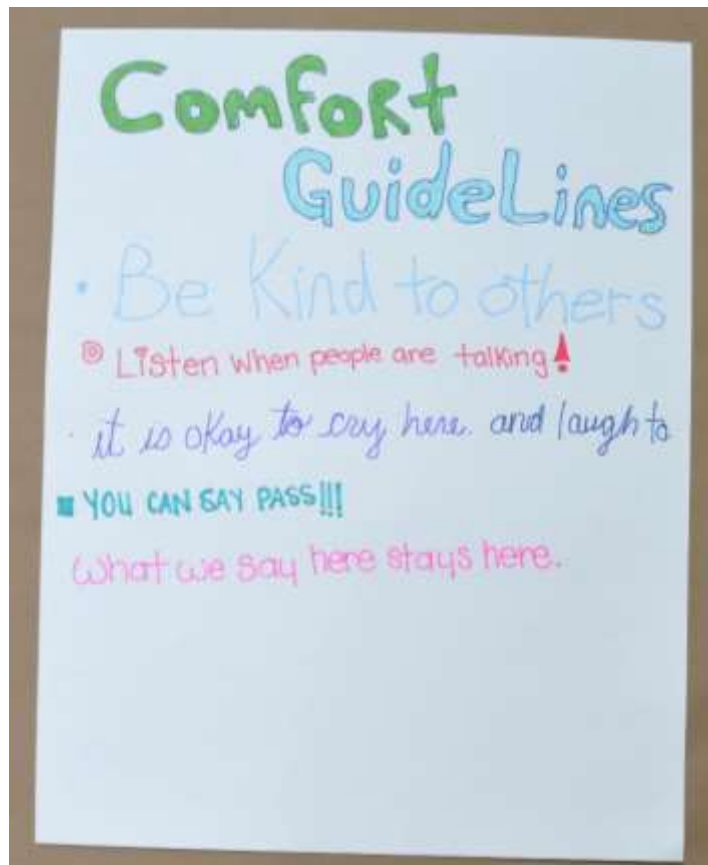 Comfort
GuideLines
• Be Kind to others
◎ Listen when people are talking!
· it is okay to cry here. and laugh to
■ YOU CAN SAY PASS!!!
What we say here stays here.